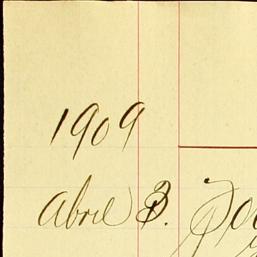 1909
Abril 3.